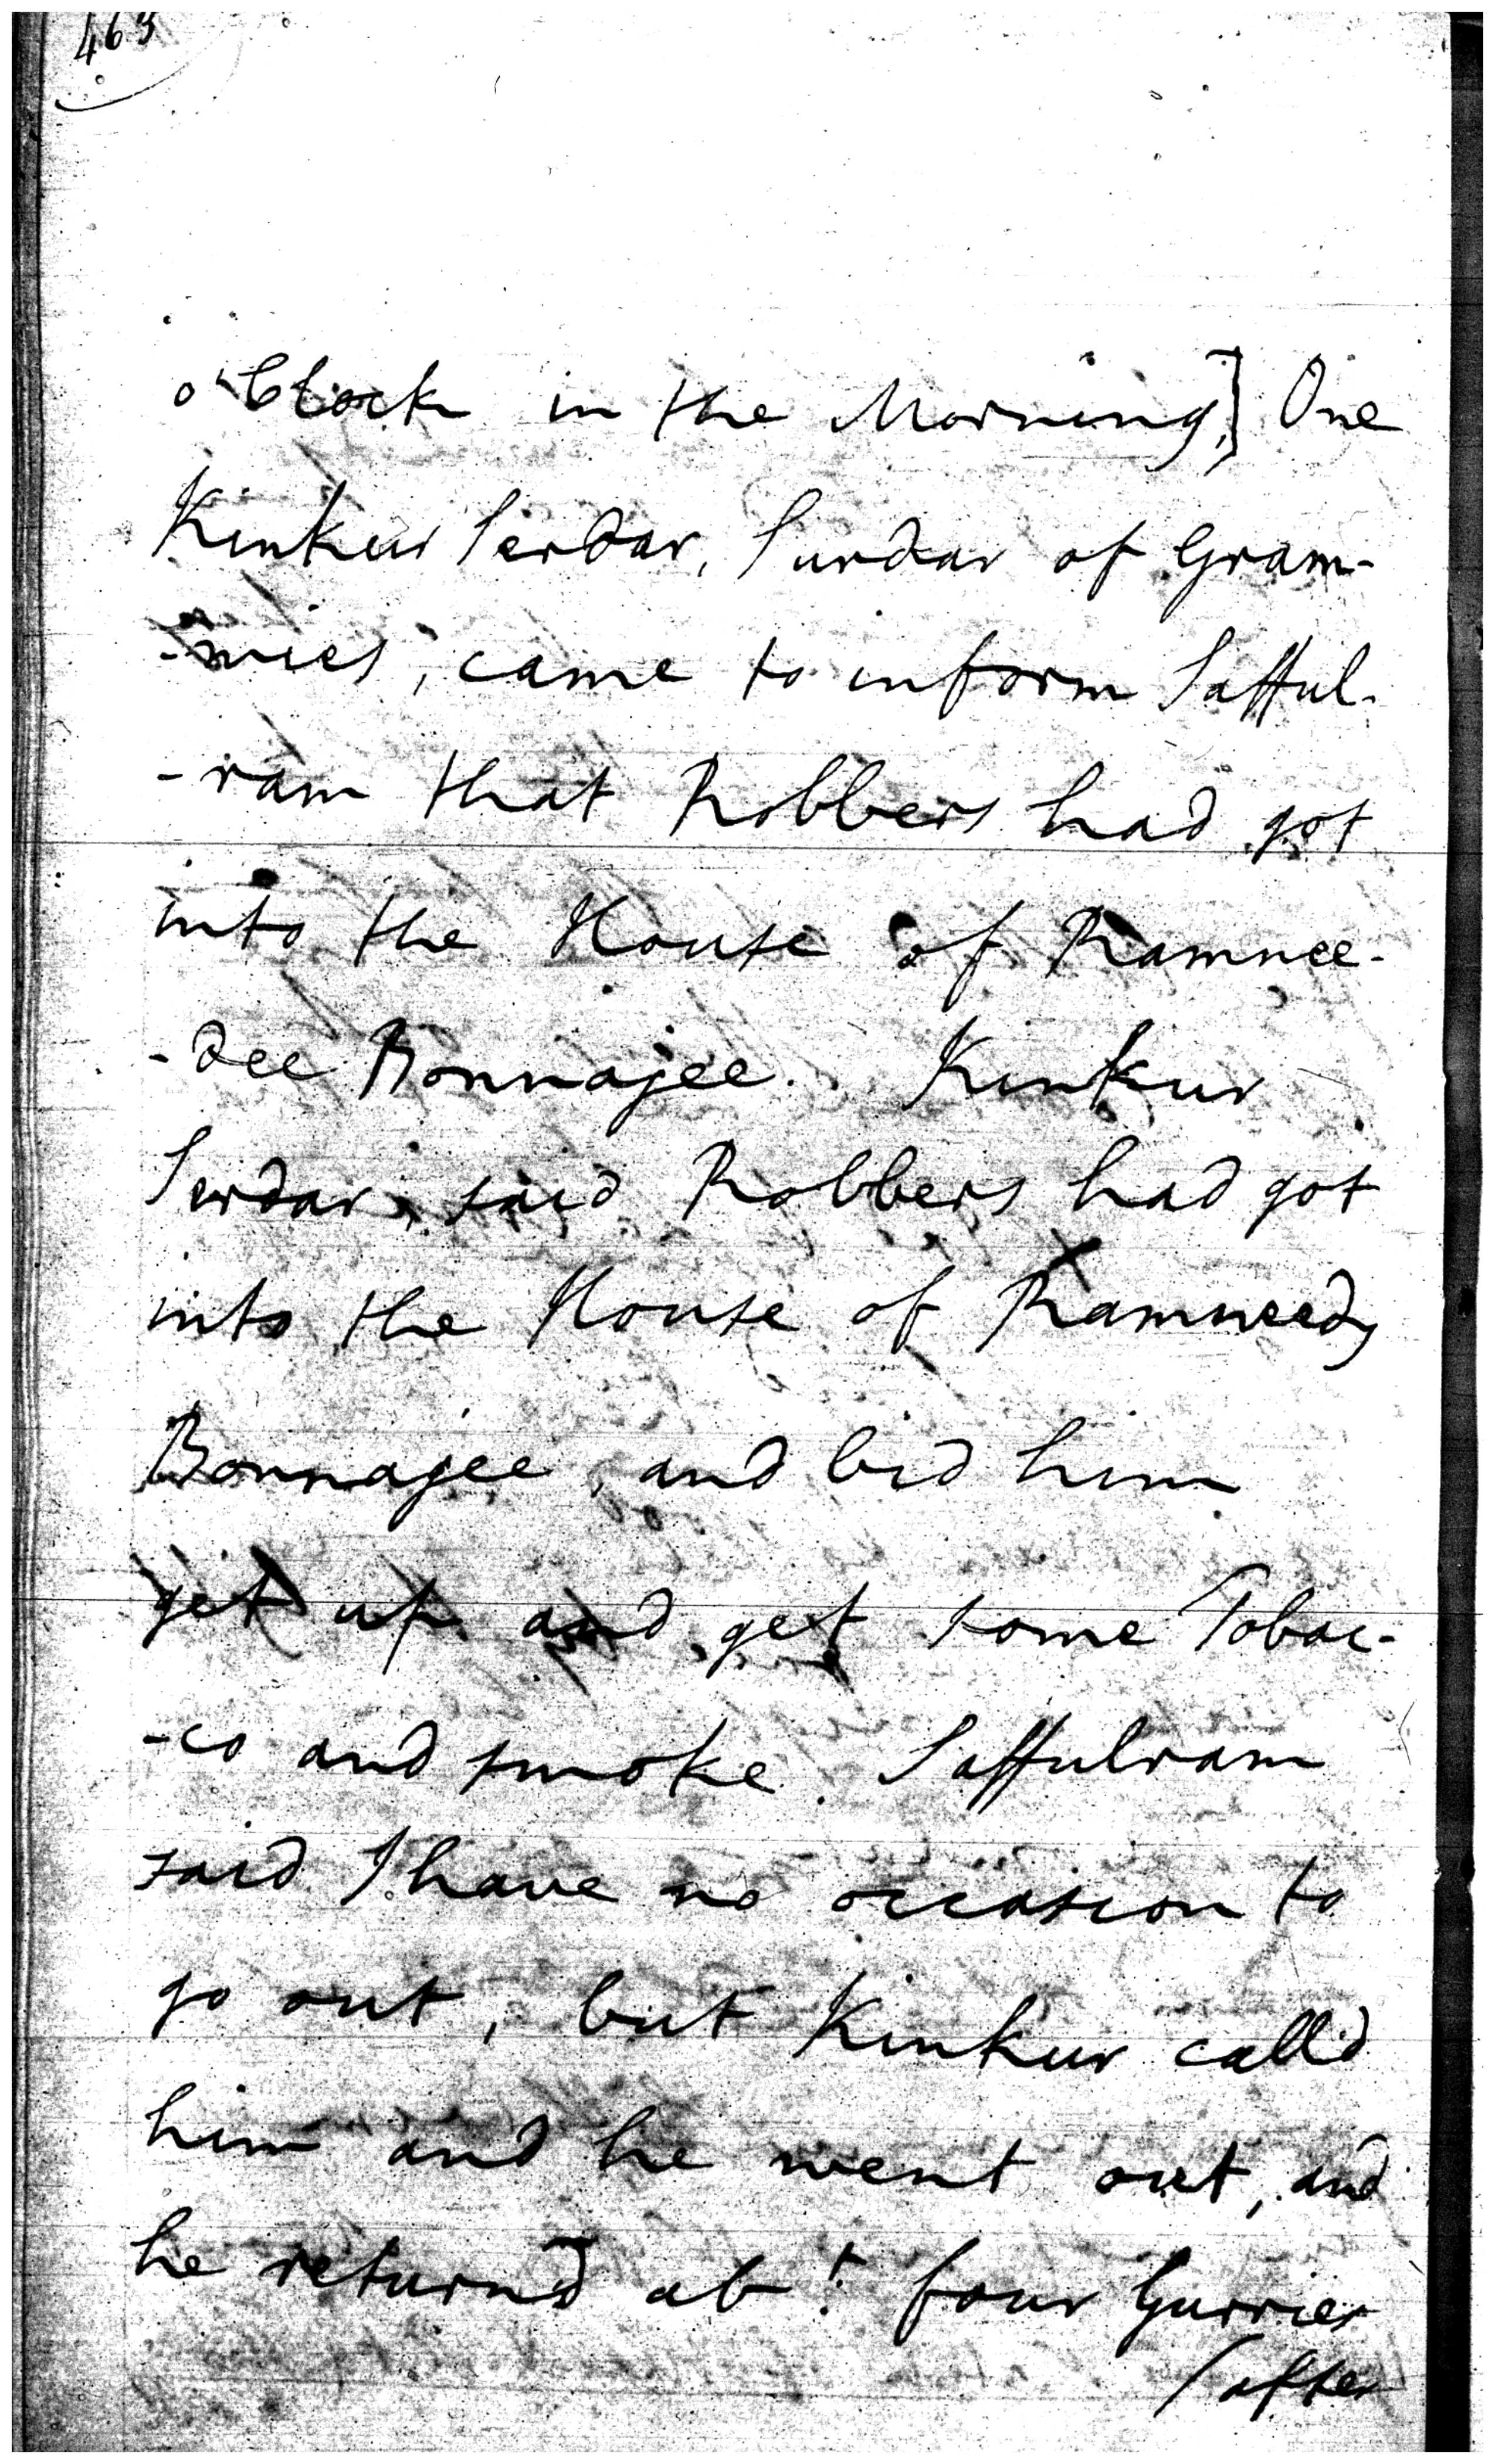 463
o'Clock in the Morning,] One
Kinkur Serdar, Surdar of Gram-
-mies, came to inform Safful-
-ram that Robbers had got
into the House of Ramnee-
-dee Bonnajee. Kinkur
Serdar, said Robbers had got
into the House of Ramneedy
Bonnajee, and bid him
get up and get some Tobac-
-co and smoke. Saffulram
said I have no occasion to
go out, but Kinkur call'd
him and he went out, and
he return'd abt. four Gurries
/after